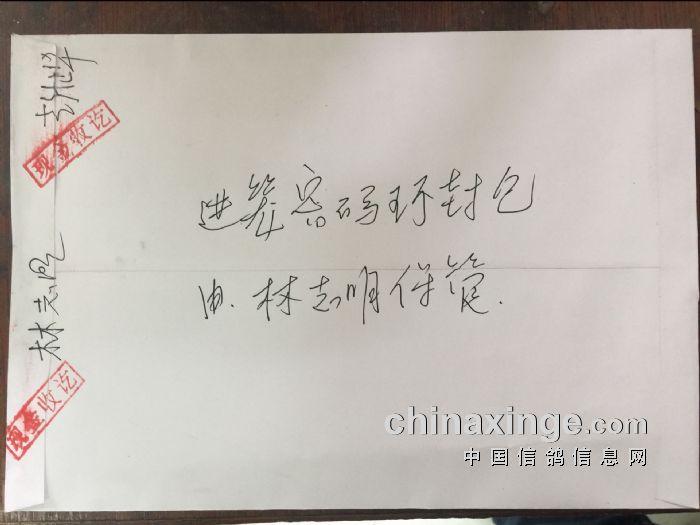 进笼密码环封包
由.林志明保管.
林志明
现金收讫
现金收讫
chinaxinge.com
中国信鸽信息网